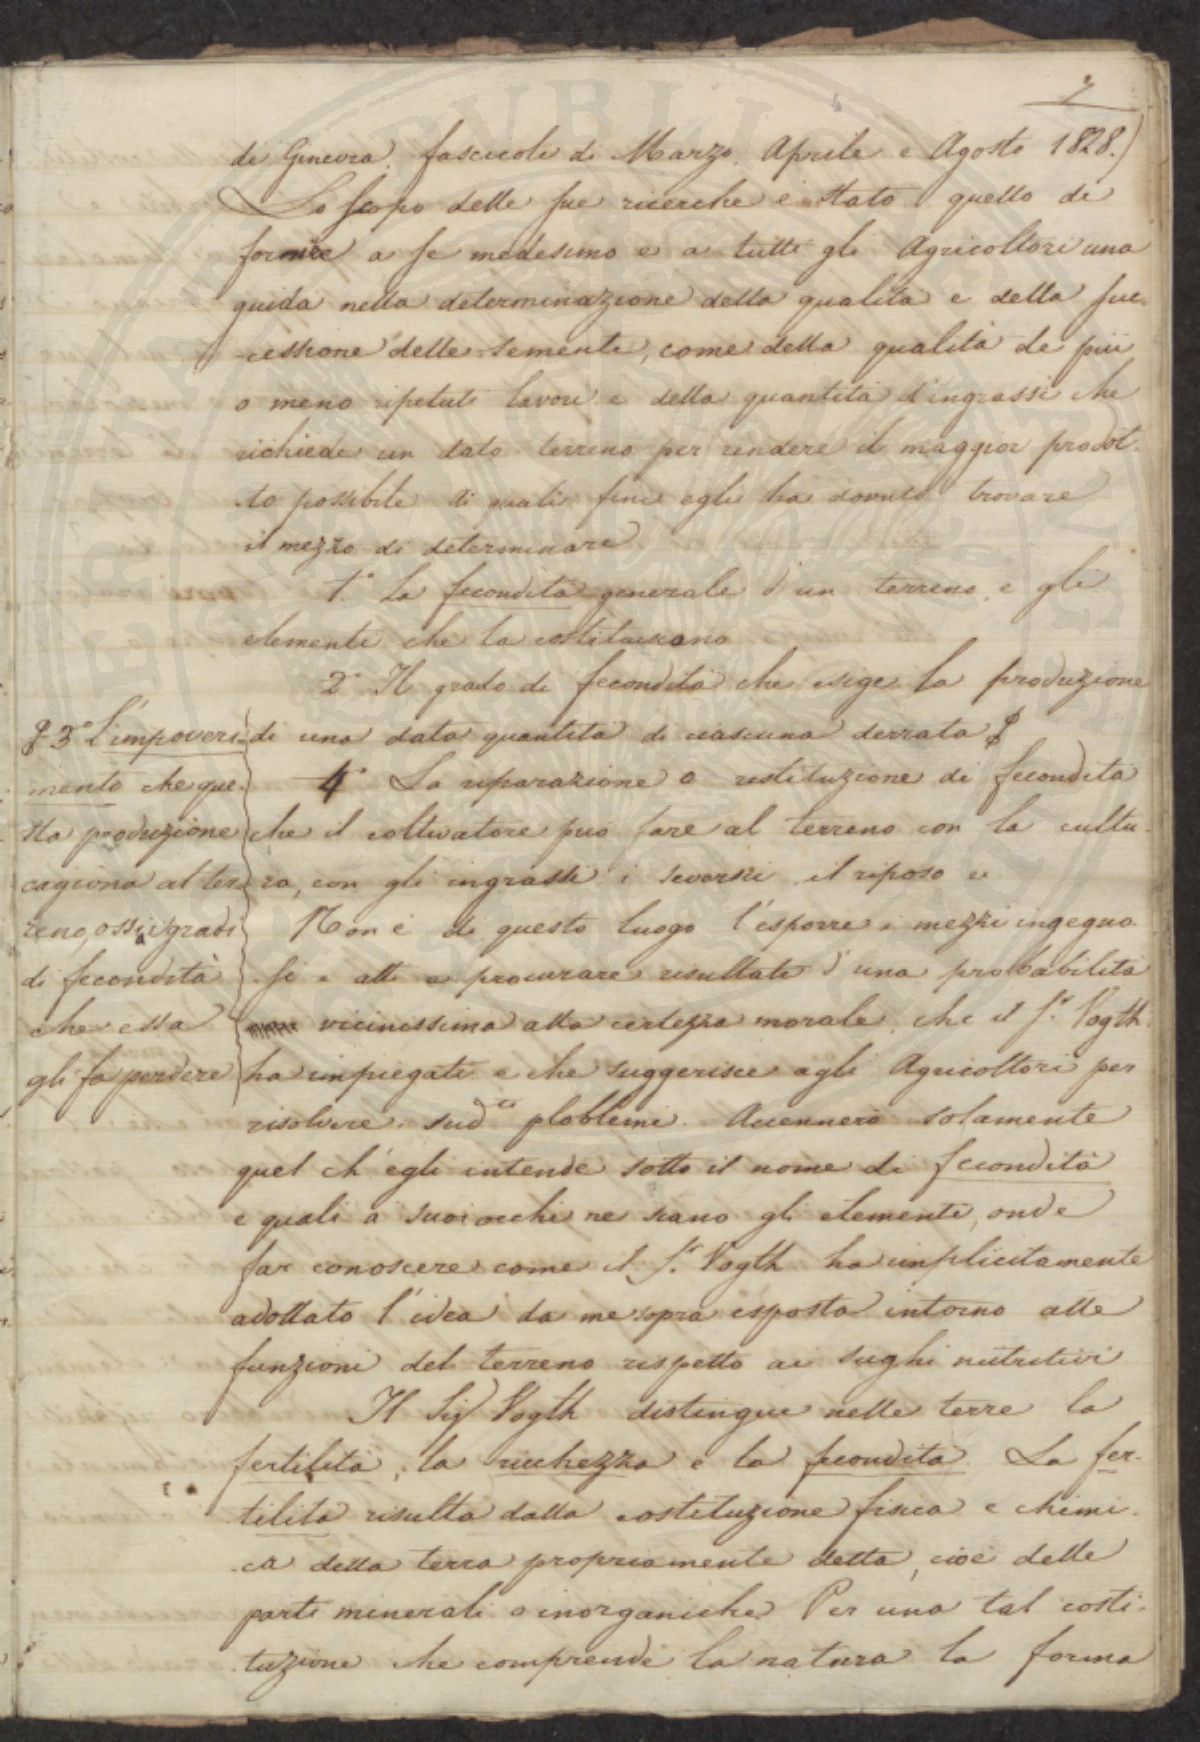 7
di Ginevra, fascicoli di Marzo, Aprile e Agosto 1828.)
Lo scopo delle sue ricerche è stato quello di
fornire a se medesimo e a tutti gli Agricoltori una
guida nella determinazione della qualità e della suc-
-cessione delle sementi, come della qualità de più
o meno ripetuti lavori e della quantità d'ingrassi che
richiede un dato terreno per rendere il maggior prodot-
-to possibile di quali fini egli ha dovuto trovare
il mezzo di determinare
1.° La fecondità generale d'un terreno, e gli
elementi che la costituiscano
2° Il grado di fecondità che esige la produzione
di una data quantità di ciascuna derrata
3° l'impoveri-
mento che que-
sta produzione
cagiona al ter-
reno, ossia i gradi
di fecondità
che essa
gli fa perdere
4° La riparazione o restituzione di fecondità
che il coltivatore può fare al terreno con la cultu-
ra, con gli ingrassi i soversci il riposo e
Non è di questo luogo l'esporre i mezzi ingegno-
si e atti a procurare resultati d'una probabilità
vicinissima alla certezza morale, che il S.r Vogth
ha impiegati e che suggerisce agli Agricoltori per
risolvere i sud.ti ploblemi. Accennerò solamente
quel ch'egli intende sotto il nome di fecondità
e quali a' suoi occhi ne siano gli elementi, onde
far conoscere come il S.r Vogth ha implicitamente
adottato l'idea da me sopra esposta intorno alle
funzioni del terreno rispetto ai sughi nutritivi
Il Sig Vogth distingue nelle terre la
fertilità, la ricchezza e la fecondità. La fer-
tilità risulta dalla costituzione fisica e chimi-
-ca della terra propriamente detta, cioè delle
parti minerali o inorganiche. Per una tal costi-
tuzione che comprende la natura la forma